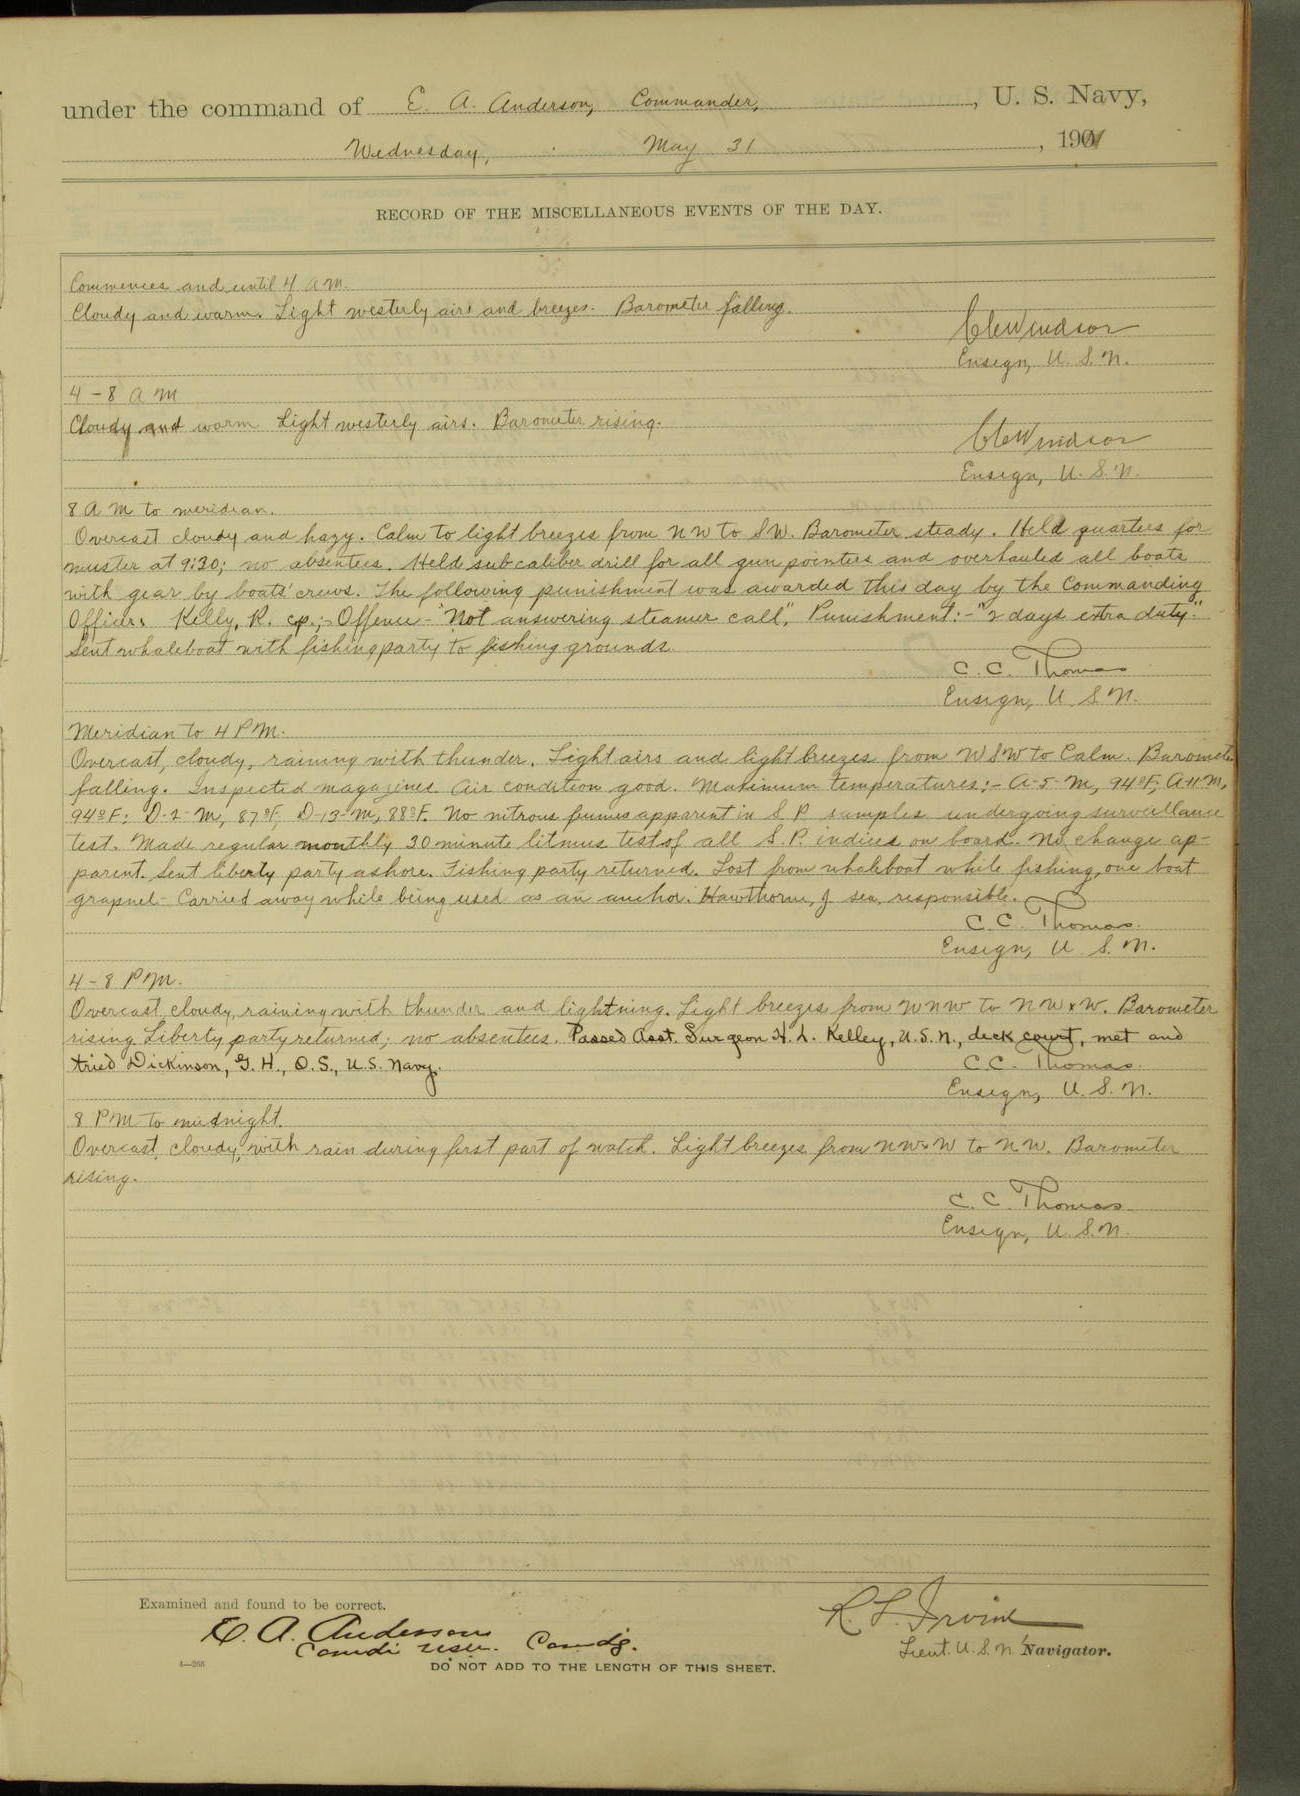 under the command of E. A. Anderson, Commander, , U. S. Navy,
Wednesday, May 31 , 1911
RECORD OF THE MISCELLANEOUS EVENTS OF THE DAY.
Commences and until 4 A M.
Cloudy and warm. Light westerly airs and breezes. Barometer falling.
Windsor
Ensign, U. S. N.
4 - 8 A M
Cloudy and warm Light westerly airs. Barometer rising.
Windsor
Ensign, U. S. N.
8 A M to meridian.
Overcast cloudy and hazy. Calm to light breezes from NW to SW. Barometer steady. Held quarters for
muster at 9:30; no absentees. Held subcaliber drill for all gun pointers and overhauled all boats
with gear by boats' crews. The following punishment was awarded this day by the Commanding
Officer: Kelly, R. cp.;- Offence- "Not answering steamer call", Punishment:- "2 days extra duty."
Sent whaleboat with fishing party to fishing grounds.
C. C. Thomas
Ensign, U. S. N.
Meridian to 4 P M.
Overcast, cloudy, raining with thunder. Light airs and light breezes from W S W to Calm. Barometer
falling. Inspected magazines. Air condition good. Maximum temperatures:- A-5-M, 94°F; A-11-M,
94°F: D-2-M, 87°F, D-13-M, 88°F. No nitrous fumes apparent in S. P. samples undergoing surveillance
test. Made regular monthly 30 minute litmus test of all S. P. indices on board. No change ap-
parent. Sent liberty party ashore. Fishing party returned. Lost from whaleboat while fishing, one boat
grapnel- Carried away while being used as an anchor. Hawthorne, J sea. responsible.
C. C. Thomas.
Ensign, U. S. N.
4 - 8 P M.
Overcast, cloudy, raining with thunder and lightning. Light breezes from W N W to N W x W. Barometer
rising. Liberty party returned; no absentees. Passed Asst. Surgeon H. L. Kelley, U.S.N., deck court, met and
tried Dickinson, G. H., O.S., U.S. Navy.
C. C. Thomas.
Ensign, U. S. N.
8 P M to midnight.
Overcast, cloudy, with rain during first part of watch. Light breezes from N W x W to N. W. Barometer
rising.
C. C. Thomas.
Ensign, U. S. N.
Examined and found to be correct.
E. A. Anderson
Comdr USN. Comdg.
R. F. Irvine
Lieut. U. S. N., Navigator.
4—268
DO NOT ADD TO THE LENGTH OF THIS SHEET.